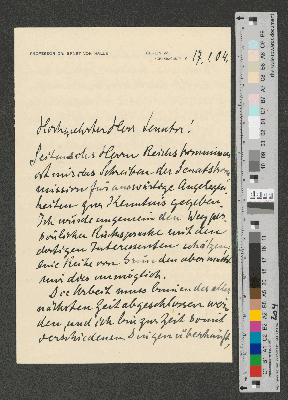 PROFESSOR DR. ERNST VON HALLE
BERLIN W.
17.1.04.
Hochgeehrter Herr Senator!
Seitens des Herrn Reichskommissars
ist mir das Schreiben der Senatskom-
mission für auswärtige Angelegen-
heiten zur Kenntnis gegeben.
Ich würde ungemein den Weg per-
sönlicher Rücksprache mit den
dortigen Interessenten schätzen,
eine Reihe von Gründen aber macht
mir dies unmöglich.
Die Arbeit muss binnen der aller-
nächsten Zeit abgeschlossen wer-
den und ich bin zur Zeit sonst
verschiedenen Dingen überhäuft,